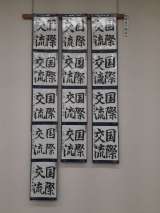 国際
交流
国際
交流
国際
交流
国際
交流
国際
交流
国際
交流
国際
交流
国際
交流
国際
交流
国際
交流
国際
交流
国際
交流
国際
交流